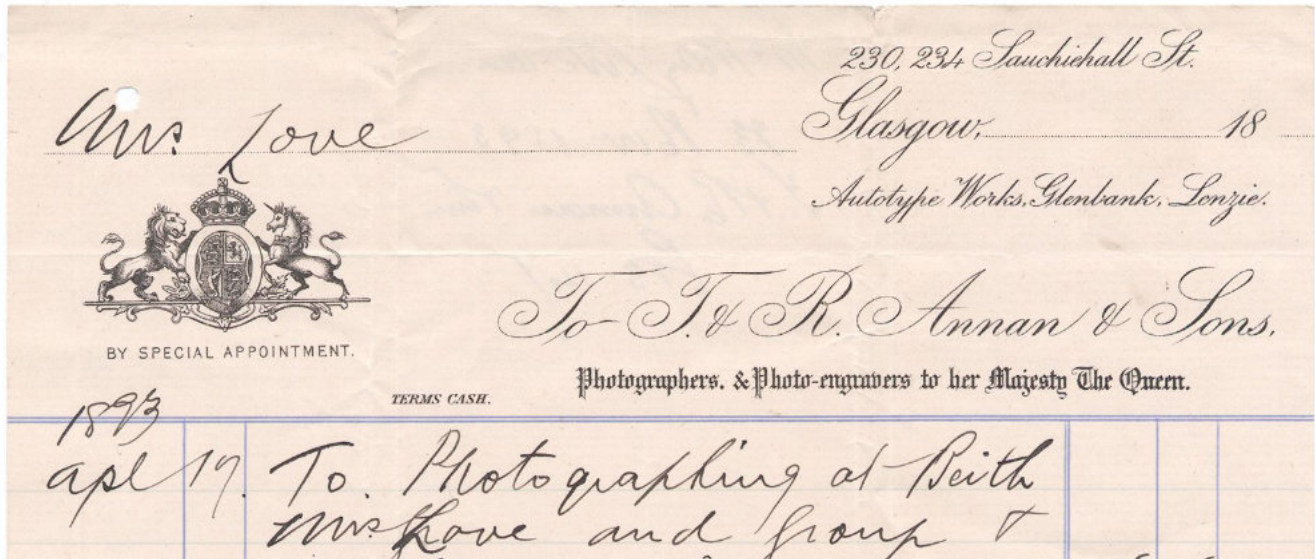 230, 234 Sauchiehall St.
Mrs. Love
Glasgow, 18
Autotype Works, Glenbank, Lenzie.
To T. & R. Annan & Sons.
BY SPECIAL APPOINTMENT.
Photographers, & Photo-engravers to her Majesty The Queen.
TERMS CASH.
1893
apl 19. To. Photographing at Beith
Mrs Love and group &